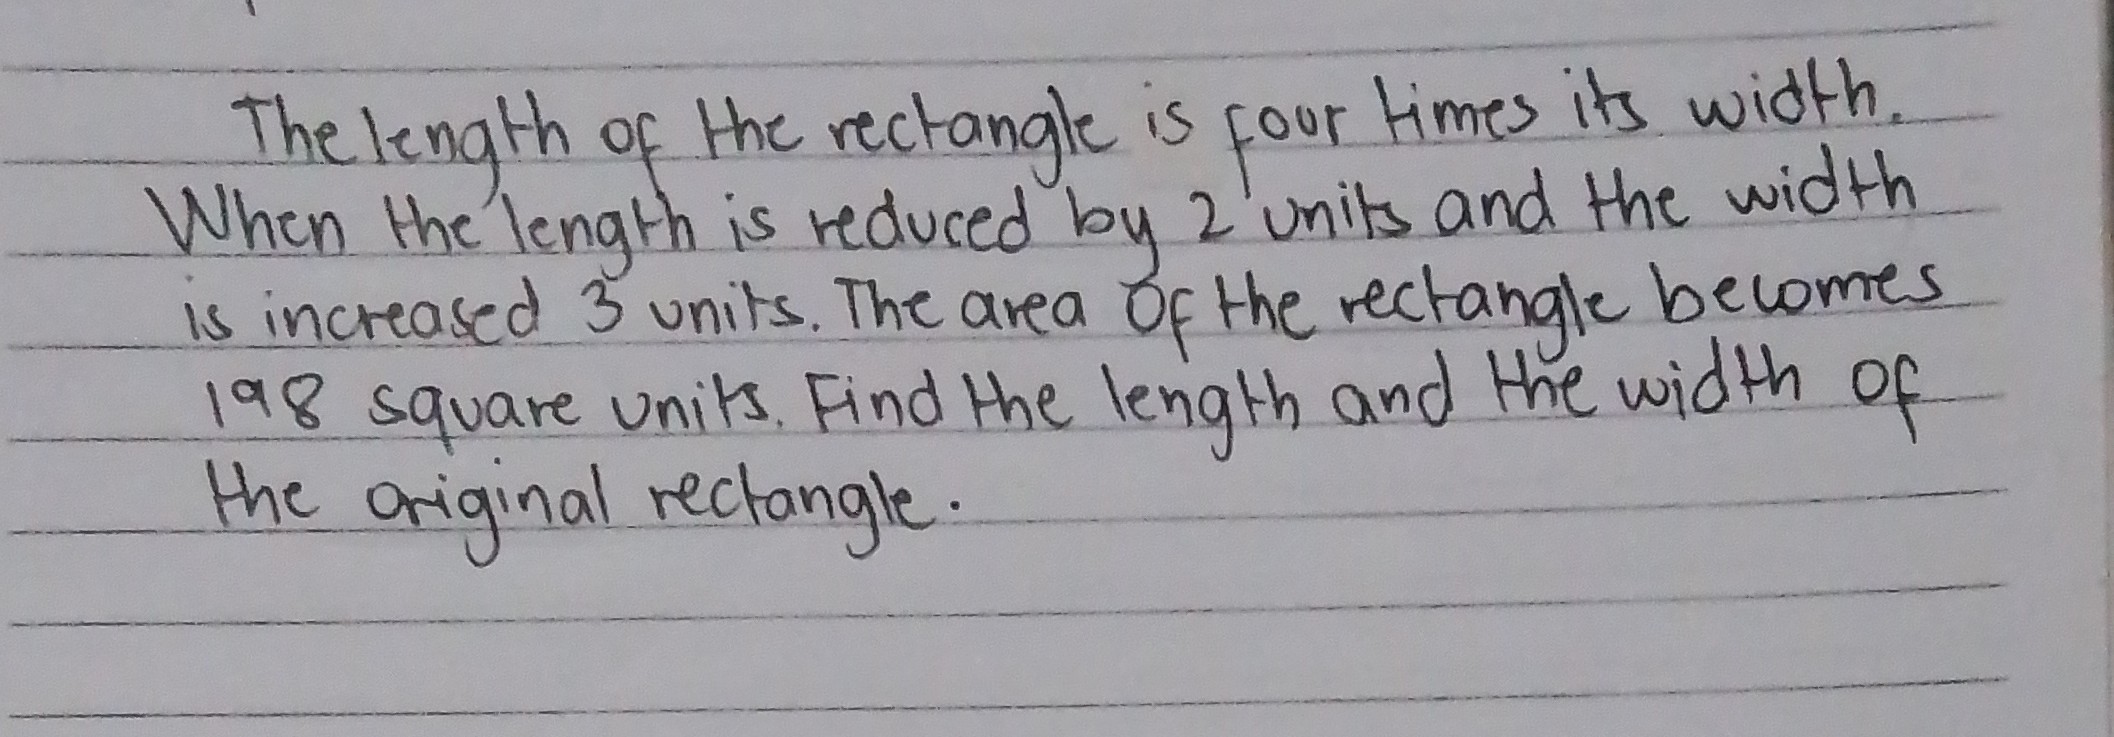 The length of the rectangle is four times its width.
When the length is reduced by 2 units and the width
is increased 3 units. The area of the rectangle becomes
198 square units. Find the length and the width of
the original rectangle.